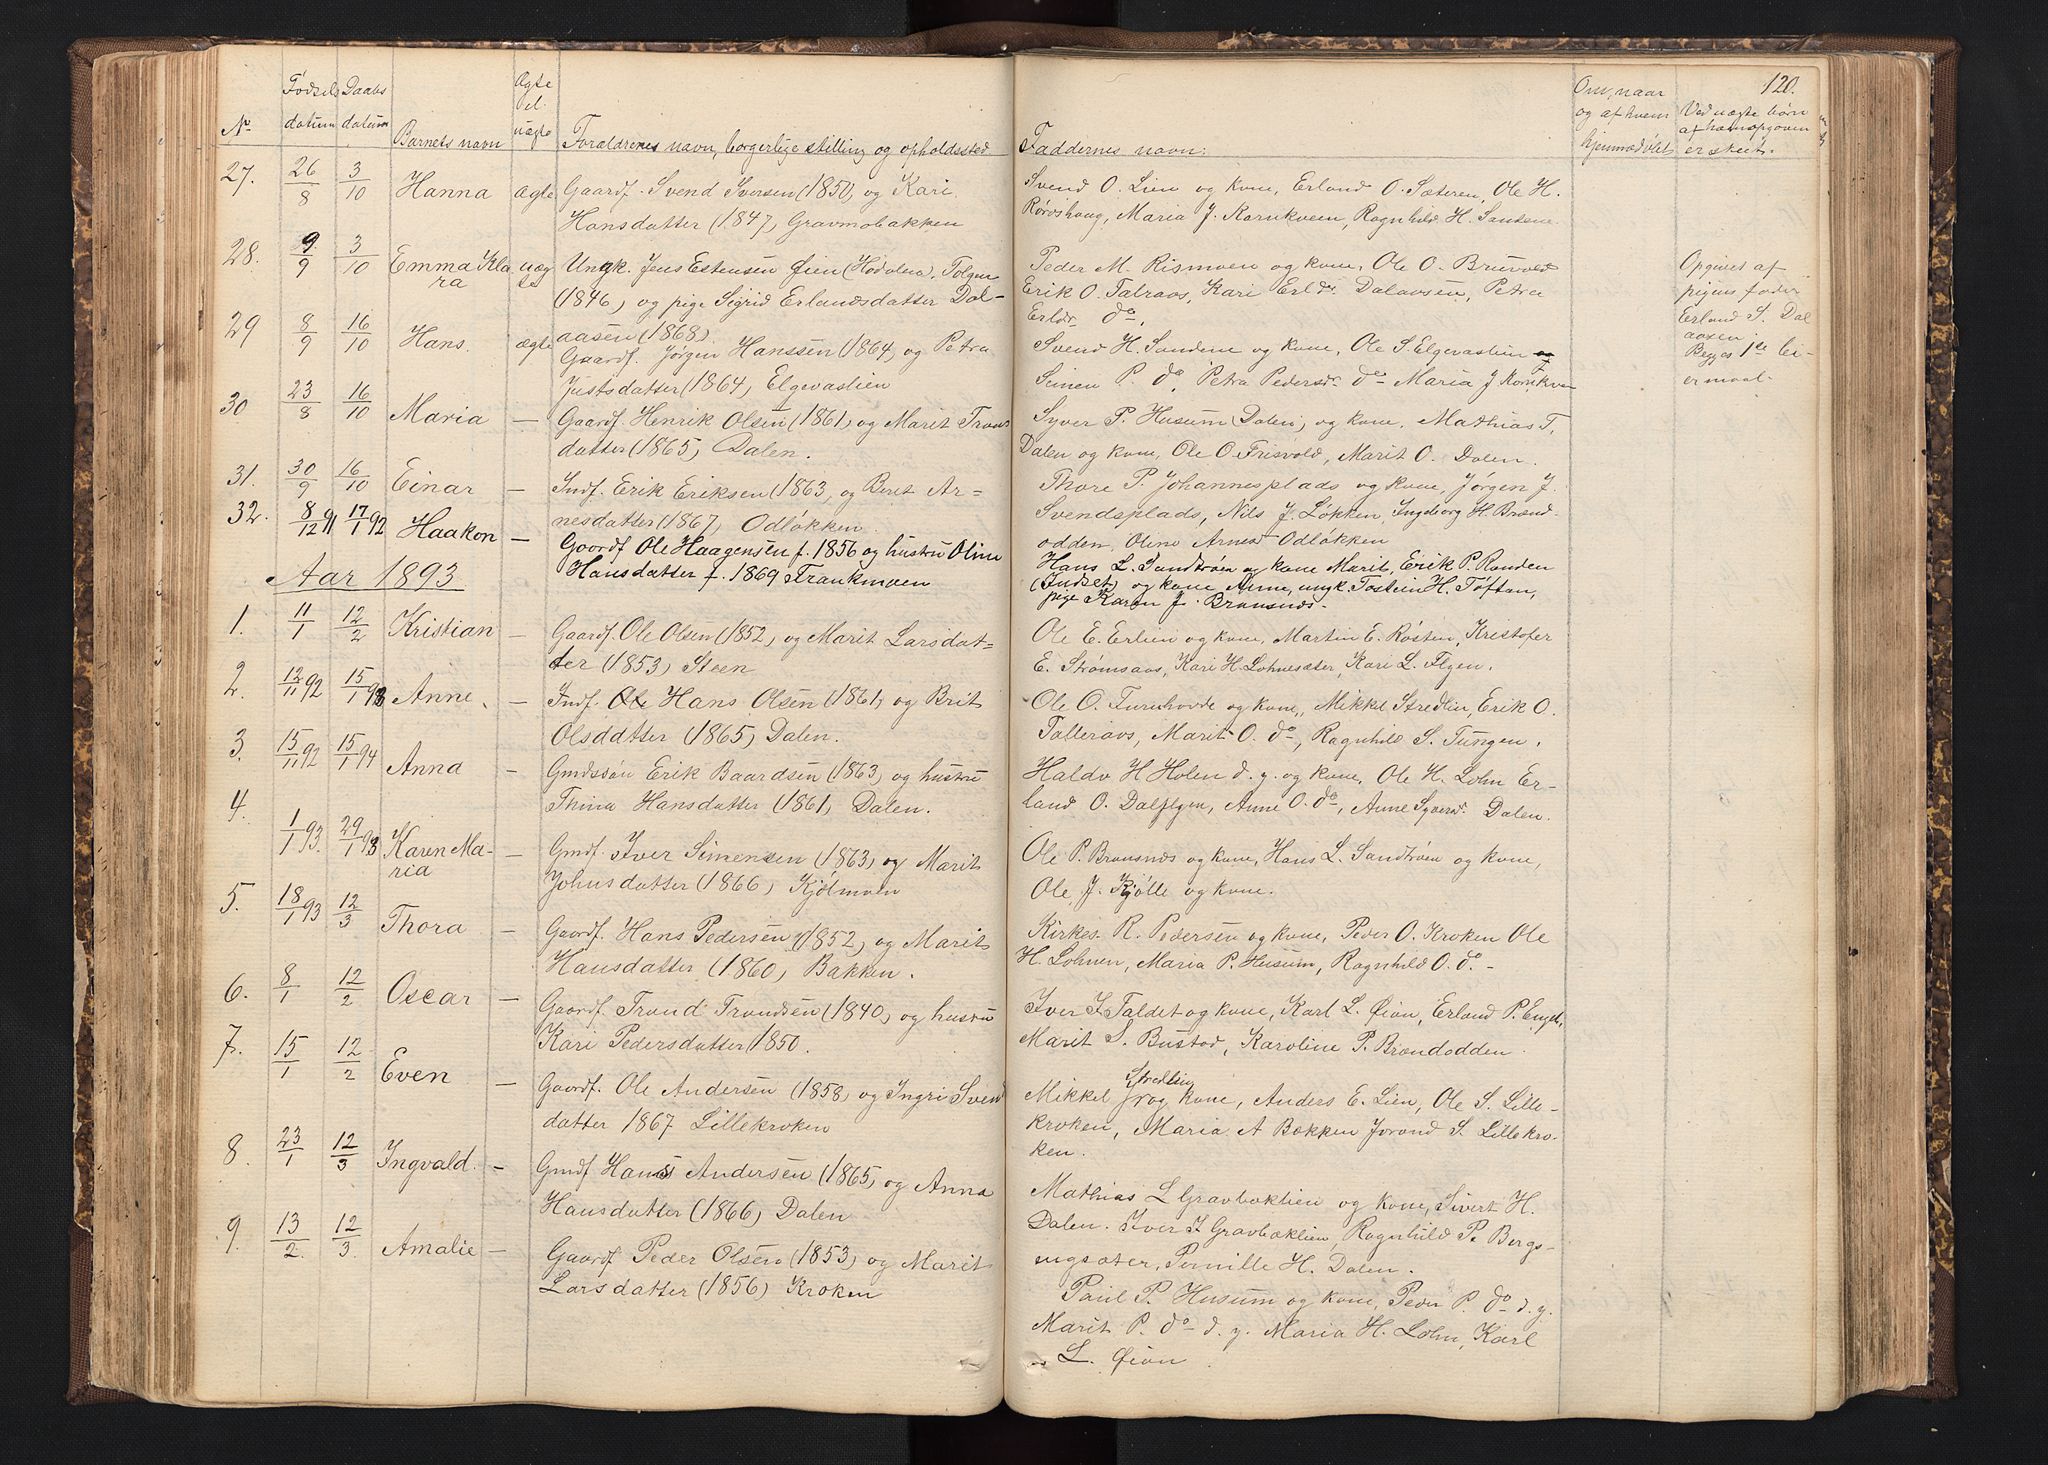 120.
No Fødsels datum Daabs datum Barnets navn Ægte el. uægte Forældrenes navn, borgerlige stilling og opholdssted
27. 26/8 3/10 Hanna ægte Gaardf. Svend Iversen (1850) og Kari
Hansdatter (1847) Gravmobakken
28. 9/9 3/10 Emma Kla uæg Ungk. Jens Estensen Øien (Hodalen, Tolgen
ra te (1846) og pige Sigrid Erlandsdatter Dal-
aasen (1868).
29 8/9 16/10 Hans. ægte Gaardf. Jørgen Hanssen (1864) og Petra
Justsdatter (1864) Elgevaslien
30 23/8 16/10 Maria — Gaardf. Henrik Olsen (1861) og Marit Trons
datter (1865) Dalen.
31. 30/9 16/10 Einar — Indf. Erik Eriksen (1863) og Beret Ar=
nesdatter (1867) Odløkken.
32. 8/12 91 17/1 92 Haakon — Gaardf Ole Haagensen f. 1856 og hustru Oline
Hansdatter f. 1869 Frankmoen
Aar 1893
1. 11/1 12/2 Kristian — Gaardf. Ole Olsen (1852) og Marit Larsdat=
ter (1853) Steen
2. 12/11 92 15/1 93 Anne. — Indf. Ole Hans Olsen (1861) og Brit
Olsdatter (1865) Dalen.
3. 15/11 92 15/1 94 Anna — Gmdssøn Erik Baardsen (1863) og hustru
Thina Hansdatter (1861) Dalen.
4. 1/1 93. 29/1 93 Karen Ma- — Gmdf. Iver Simensen (1863) og Marit
ria Johnsdatter (1866) Kjølmoen
5. 18/1 93 12/3 Thora — Gaardf. Hans Pedersen (1852) og Marit
Hansdatter (1860) Bakken.
6. 8/1 12/2 Oscar — Gaardf. Trond Trondsen (1840) og hustru
Kari Pedersdatter 1850.
7. 15/1 12/2 Even — Gaardf. Ole Andersen (1858) og Ingri Svend
datter 1867 Lillekroken
8. 23/1 12/3 Ingvald. — Gmdf Hans Andersen (1865) og Anna
Hansdatter (1866) Dalen
9. 13/2 12/3 Amalie — Gaardf Peder Olsen (1853) og Marit
Larsdatter (1856) Kroken
Faddernes navn:
Svend O. Lien og kone, Erland O. Sæteren, Ole H.
Røroshaug, Maria J. Kornkveen, Ragnhild H. Sandene
Peder M. Rismoen og kone, Ole O. Bruvold
Erik O. Talraas, Kari Erlds. Dalaasen, Petra
Erldr. do.
Svend H. Sandene og kone, Ole S. Elgevaslien
Simen P. do, Petra Pedersd. do Maria J Kornkven
Syver P. Husum (Dalen) og kone, Mathias T.
Dalen og kone, Ole O. Frisvold, Marit O. Dalen.
Thore P. Johannesplads og kone, Jørgen J.
Svendsplads, Nils J. Løkken, Ingeborg H. Brænd-
odden, Oline Arnesd Odløkken
Hans L. Sandtrøen og kone Marit, Erik P. Randen
(Indset) og kone Anne, ungk. Tostein H. Tøftan,
pige Karen J. Bransnæs.
Ole E. Erlien og kone, Martin E. Røsten, Kristofer
E. Strømsaas, Kari H. Lohnesæter, Kari L. Flyen.
Ole O. Furuhovde og kone, Mikkel Stredlien, Erik O.
Talleraas, Marit O. do, Ragnhild S. Tungen.
Haldo H Holen d. y. og kone, Ole H. Lohn Er-
land O. Dalflyen, Anne O. do, Anne Syversd. Dalen.
Ole P. Bransnæs og kone, Hans L. Sandtrøen og kone,
Ole J. Kjølle og kone.
Kirkes. R. Pedersen og kone, Peder O. Kroken Ole
H. Lohnen, Maria P. Husum, Ragnhild O. do. -
Iver I Faldet og kone, Karl L. Øian, Erland P. Enget,
Marit S. Bustad, Karoline P. Brændodden
Stredlien
Mikkel og kone, Anders E. Lien, Ole S. Lille-
kroken, Maria A Bakken Jorand S. Lillekro-
ken.
Mathias L Gravbaklien og kone, Sivert H.
Dalen. Iver I Gravbaklien, Ragnhild P. Bergs-
engsæter, Pernille H. Dalen.
Paul P. Husum og kone, Peder P. do d. y.
Marit P. do d. y. Maria H. Lohn, Karl
L. Øian
Om, naar
og af hvem
hjemmedøbt
Ved uægte børn
af hvem opgaven
er skeet.
Opgivet af
pigens fader
Erland S. Dal
aasen
Begges 1ste lei-
ermaal.